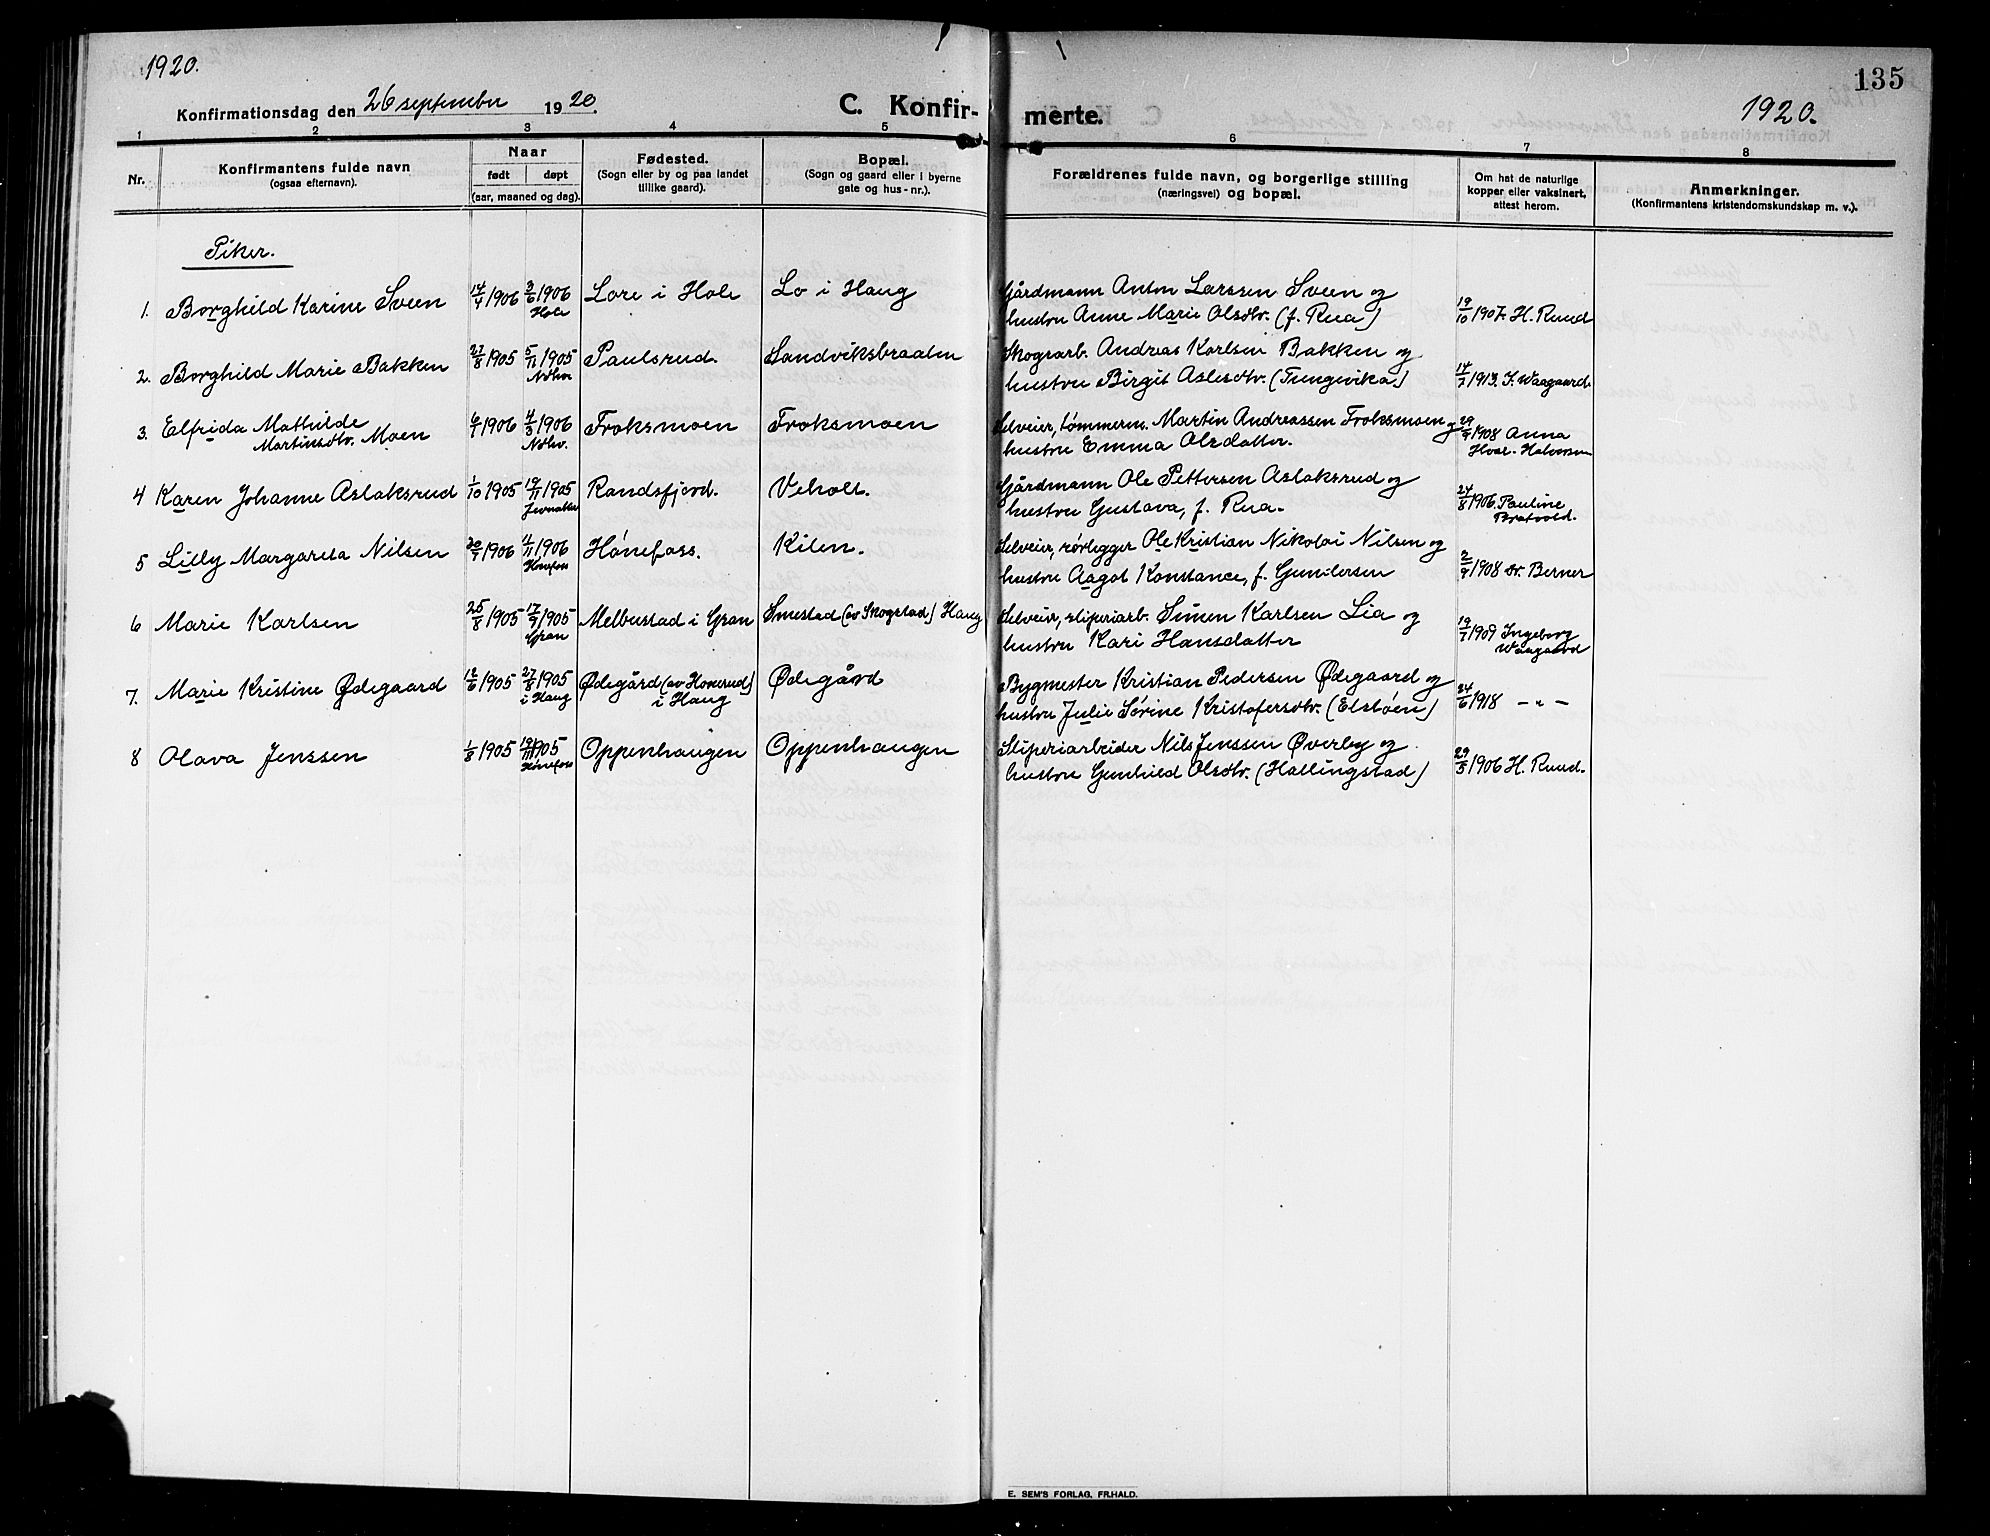 1920.
135
Konfirmationsdag den 26 september 1920.
C. Konfirmerte.
1920.
1 2 3 4 5 6 7 8
Nr.
Konfirmantens fulde navn
(ogsaa efternavn).
Naar
født døpt
(aar, maaned og dag).
Fødested.
(Sogn eller by og paa landet
tillike gaard).
Bopæl.
(Sogn og gaard eller i byerne
gate og hus-nr.).
Forældrenes fulde navn, og borgerlige stilling
(næringsvei) og bopæl.
Om hat de naturlige
kopper eller vaksinert,
attest herom.
Anmerkninger.
(Konfirmantens kristendomskundskap m. v.).
Piker.
1. Borghild Karine Sveen 14/4 1906 3/6 1906 Hole Lore i Hole Lo i Haug Gårdmann Anton Larssen Sveen og
hustru Anne Marie Olsdtr. (f. Rua) 19/10 1907. H. Ruud
2. Borghild Marie Bakken 27/8 1905 5/11 1905 Ndhv Paulsrud. Sandviksbraaten Skogsarb. Andreas Karlsen Bakken og
hustru Birgit Aslesdtr. (Tungevika) 14/7 1913. I. Waagaard.
3. Elfrida Mathilde
Martinsdtr. Moen 6/1 1906 4/3 1906 Ndhv. Froksmoen Froksmoen Selveier, tømmerm. Martin Andreassen Froksmoen og
hustru Emma Olsdatter. 29/9 1908 Anna
Hval-Halvorsen
4 Karen Johanne Aslaksrud 1/10 1905 19/11 1905 Jevnaker Randsfjord. Veholt. Gårdmann Ole Pettersen Aslaksrud og
hustru Gustava, f. Rua. 24/8 1906. Pauline
Bratvold.
5 Lilly Margareta Nilsen 20/7 1906 4/11 1906 Hønefoss Hønefoss. Kilen. Selveier, rørlegger Ole Kristian Nikolai Nilsen og
hustru Aagot Konstance, f. Gundersen 2/9 1908 dr. Berner
6 Marie Karlsen 25/8 1905 17/9 1905 Gran Melbustad i Gran Smestad (av Skogstad) Haug Selveier, sliperiarb. Simen Karlsen Lia og
hustru Kari Hansdatter 19/7 1909 Ingeborg
Waagaard
7. Marie Kristine Ødegaard 12/6 1905 27/8 1905 i Haug Ødegård (av Honerud)
i Haug Ødegård Bygmester Kristian Pedersen Ødegaard og
hustru Julie Sørine Kristofersdtr. (Elstøen) 24/6 1918 – " –
8 Olava Jenssen 1/8 1905 19/11 1905 Hønefoss Oppenhaugen Oppenhaugen Sliperiarbeider Nils Jenssen Øverby og
hustru Gunhild Olsdtr. (Hallingstad) 29/5 1906 H. Ruud.
E. SEM'S FORLAG, FR.HALD.